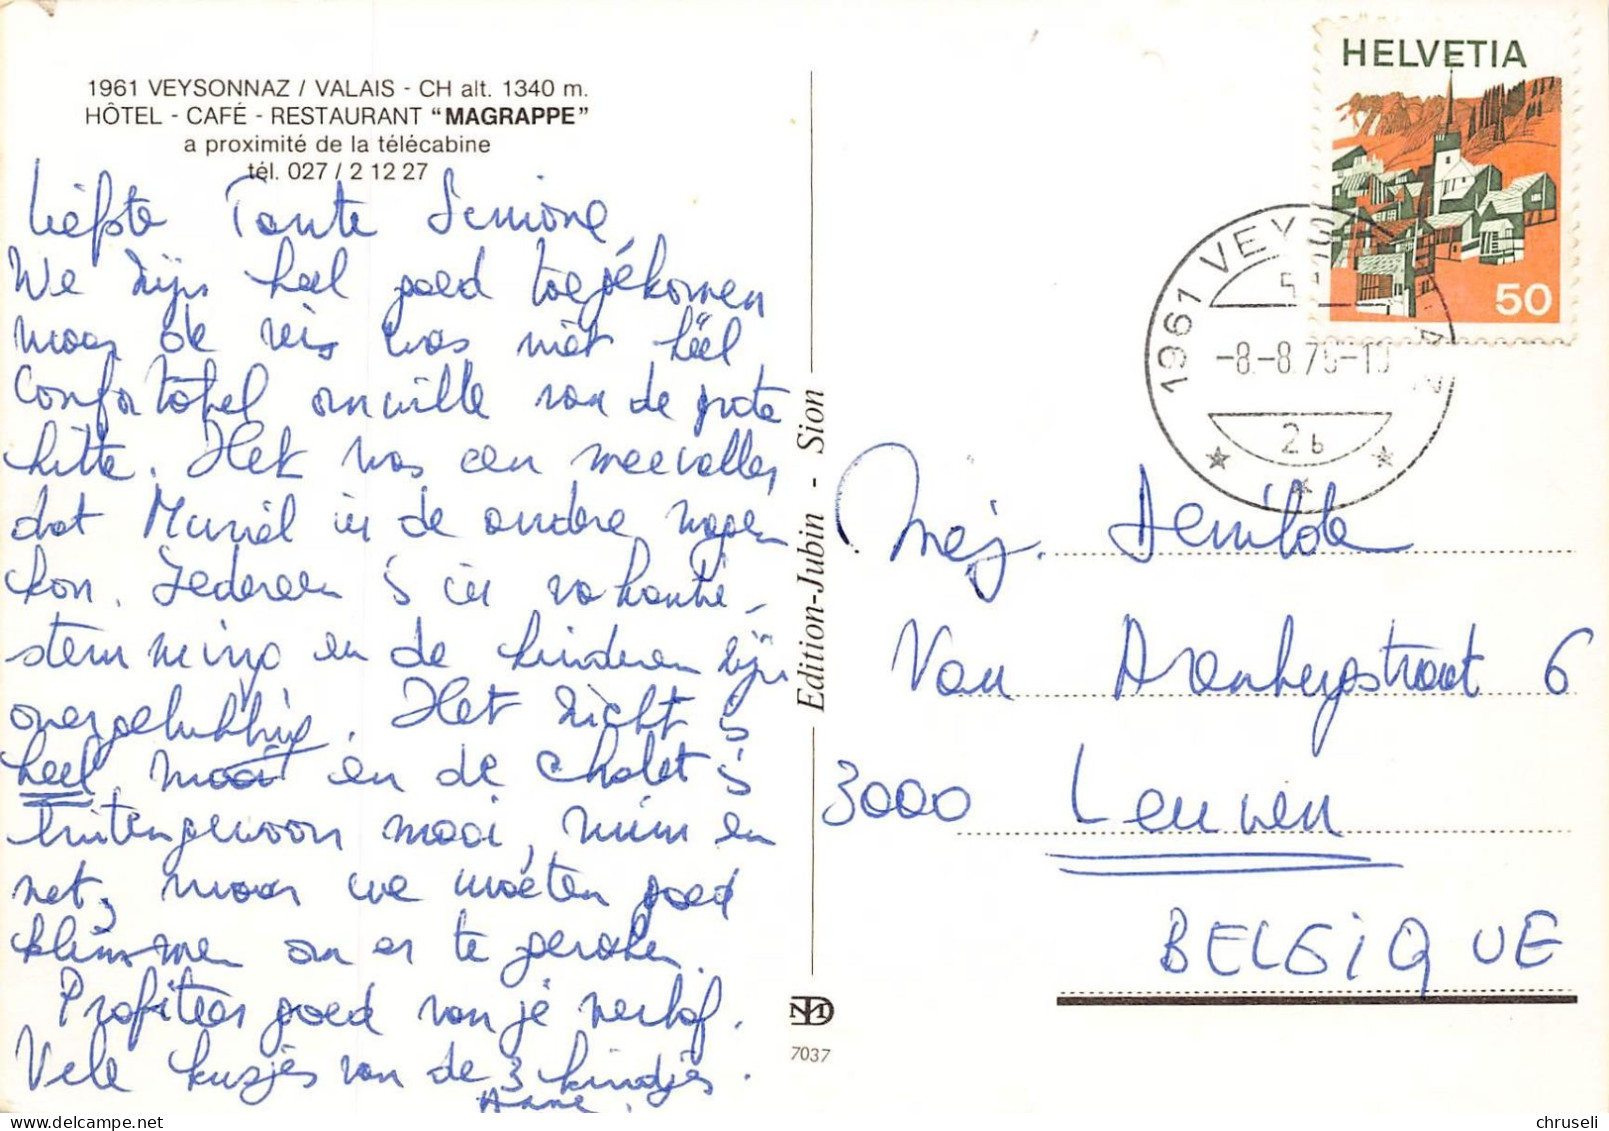 1961 VEYSONNAZ / VALAIS - CH alt. 1340 m.
HÔTEL - CAFÉ - RESTAURANT "MAGRAPPE"
a proximité de la télécabine
tél. 027 / 2 12 27
Liefste Tante Simone,
We zijn heel goed toegekomen
maar de reis was niet heel
confortabel omwille van de grote
hitte. Het was een meevaller
dat Muriël in de andere wagen
kon. Iedereen is in vakantie-
stemming en de kinderen zijn
overgelukkig. Het zicht is
heel mooi en de chalet is
buitengewoon mooi, ruim en
net, maar we moeten goed
klimmen om er te geraken.
Profiteer goed van je verlof.
Vele kusjes van de 3 kindjes.
Anne.
Edition-Jubin - Sion
7037
HELVETIA
50
1961 VEYSONNAZ
-8.-8.75-10
2b
Mej. Demilde
Van Arenbergstraat 6
3000 Leuven
BELGIQUE
chruseli